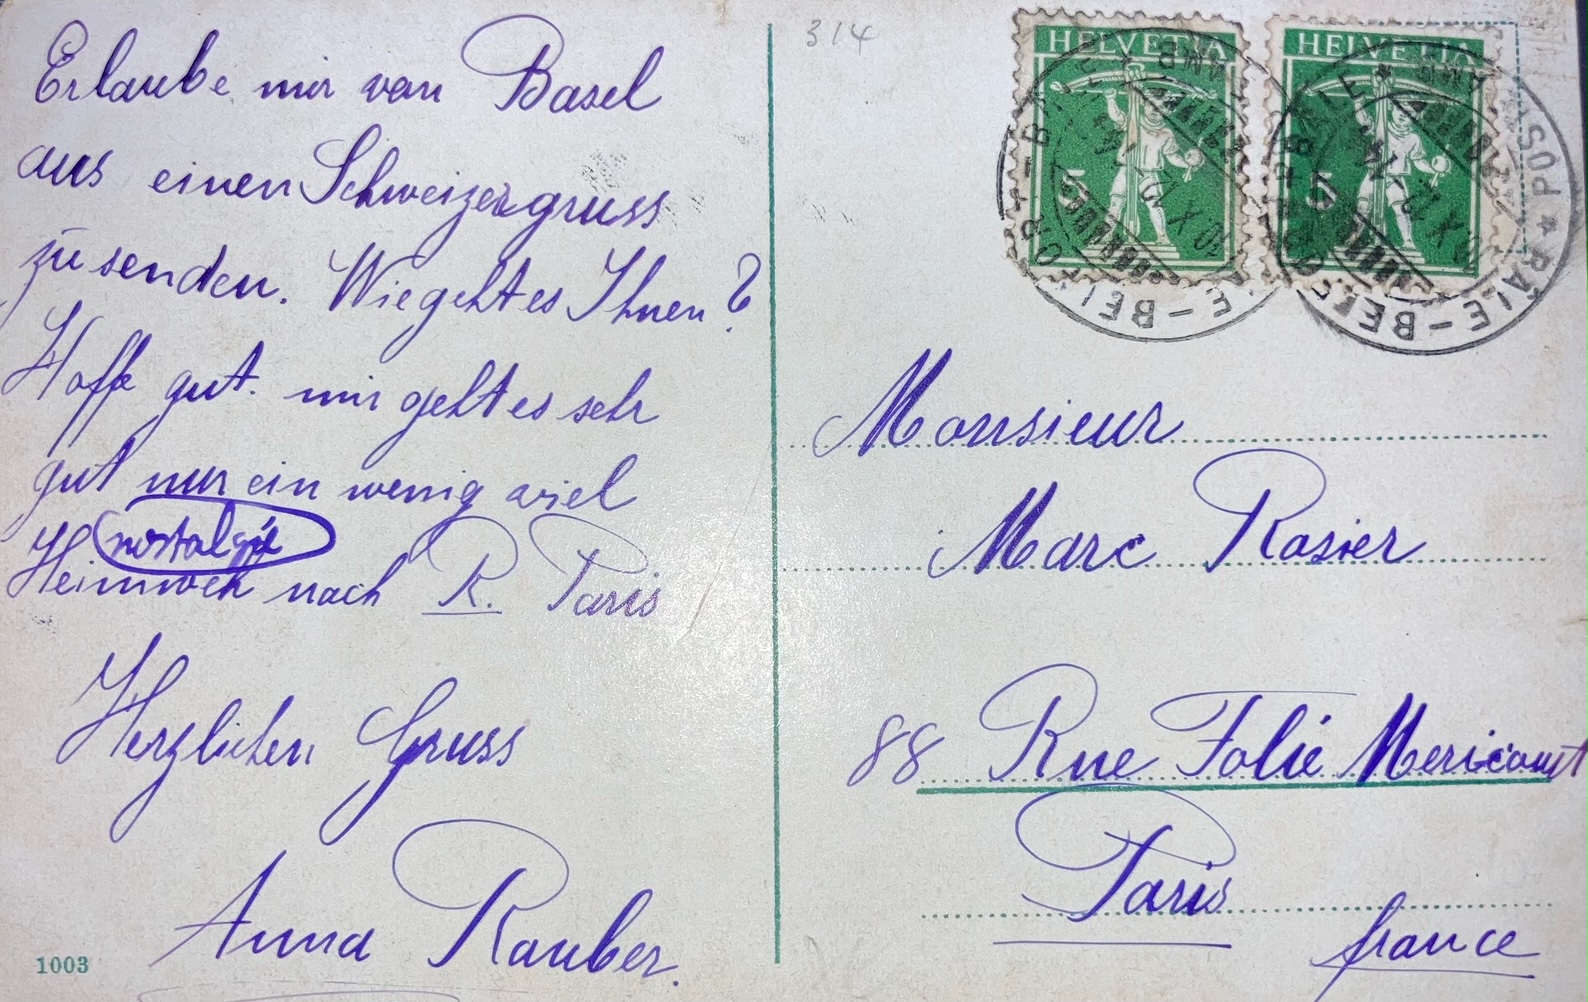 Erlaube mir von Basel
aus einen Schweizergruss
zu senden. Wie geht es Ihnen?
Hoffe gut. mir geht es sehr
gut nur ein wenig viel
nostalgie
Heimweh nach R. Paris
Herzlichen Gruss
Anna Rauber.
1003
314
HELVETIA
5
HELVETIA
5
BÂLE-BELFORT
AMB
10 X 12
POST
BÂLE-BELFORT
AMB
10 X 12
Monsieur
Marc Rosier
88 Rue Folie Mericourt
Paris
france